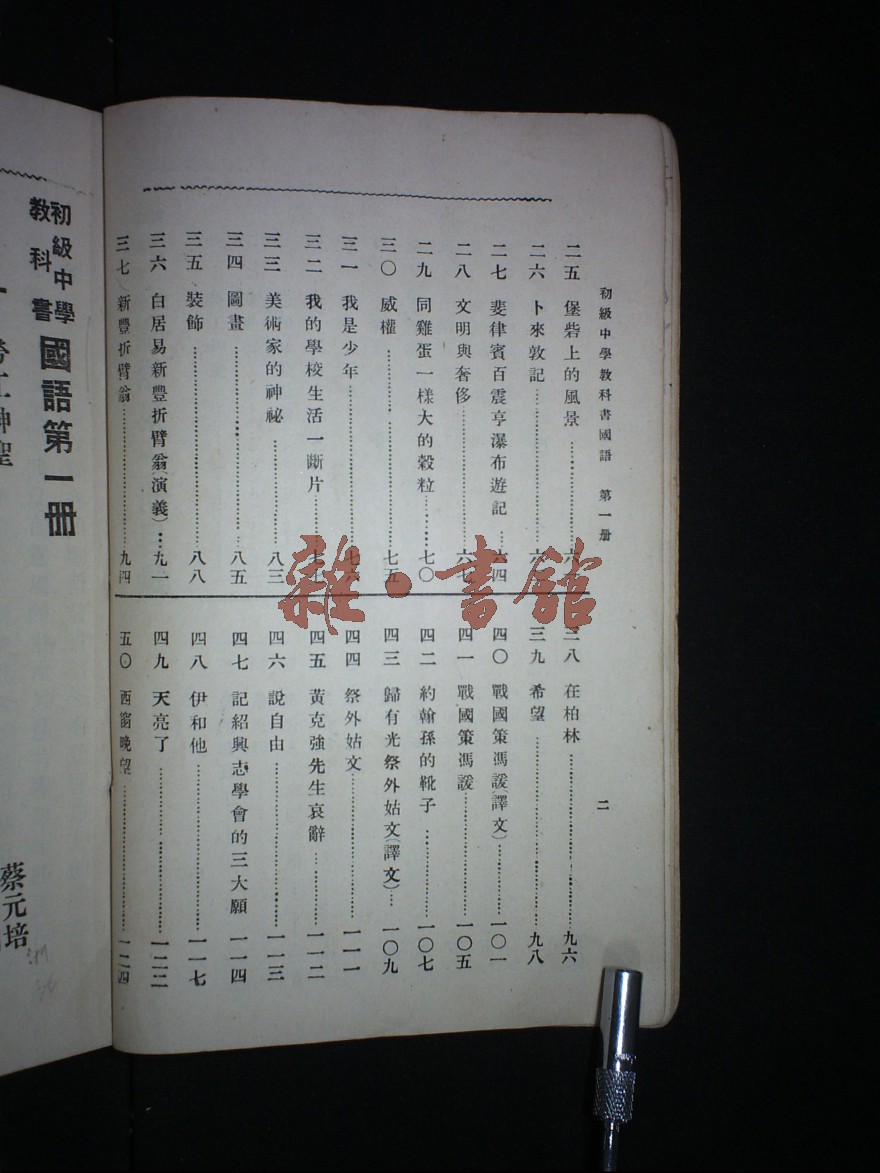 初級中學教科書國語　第一册
二
二五　堡砦上的風景
二六　卜來敦記
二七　斐律賓百震亨瀑布遊記……六四
二八　文明與奢侈……六七
二九　同雞蛋一樣大的穀粒……七〇
三〇　威權……七五
三一　我是少年
三二　我的學校生活一斷片
三三　美術家的神祕……八三
三四　圖畫……八五
三五　裝飾……八八
三六　白居易新豐折臂翁(演義)…九一
三七　新豐折臂翁……九四
三八　在柏林……九六
三九　希望……九八
四〇　戰國策馮諼(譯文)……一〇一
四一　戰國策馮諼……一〇五
四二　約翰孫的靴子……一〇七
四三　歸有光祭外姑文(譯文)…一〇九
四四　祭外姑文……一一一
四五　黃克強先生哀辭……一一二
四六　說自由……一一三
四七　記紹興志學會的三大願　一一四
四八　伊和他……一一七
四九　天亮了……一二二
五〇　西窗晚望……一二四
初級中學
教科書
國語第一册
蔡元培
雜·書館